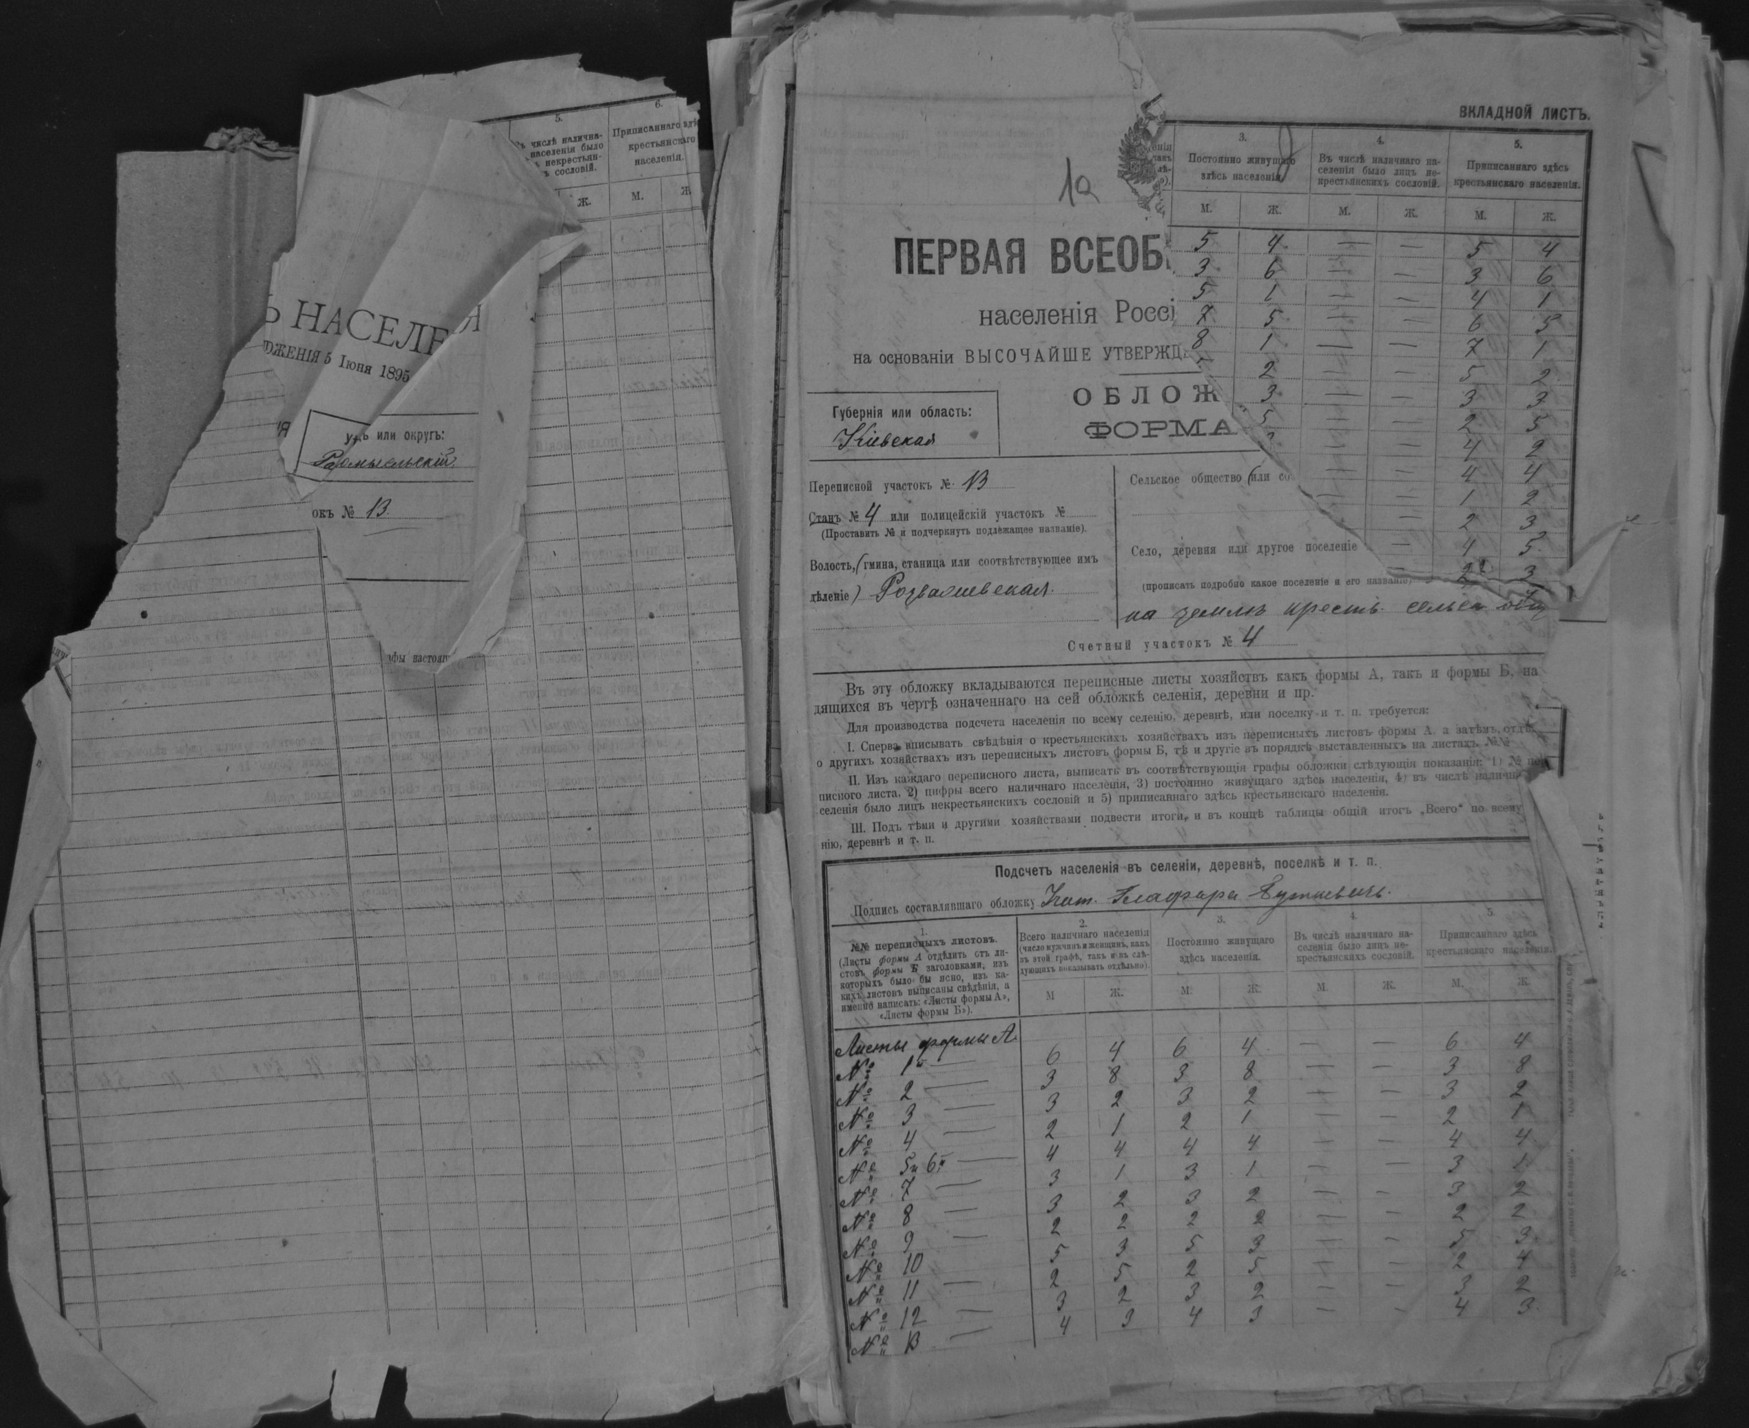 5.
6.
числѣ налична-
населенія было
некрестьян-
сословій.
Приписаннаго здѣ
крестьянскаго
населенія.
Ж.
М.
Ж.
Ъ НАСЕЛЕ
Я
ОЖЕНІЯ 5 Іюня 1895
или округъ:
Радомысльскій
окъ № 13
фы настоя
ВКЛАДНОЙ ЛИСТЪ.
1а
3.
Постоянно живущаго
здѣсь населенія.
4.
Въ числѣ наличнаго на-
селенія было лицъ не-
крестьянскихъ сословій.
5.
Приписаннаго здѣсь
крестьянскаго населенія.
М. Ж. М. Ж. М. Ж.
5 4 — — 5 4
3 6 — — 3 6
5 1 — — 4 1
7 5 — — 6 5
8 1 — — 7 1
2 — — 5 2
3 — — 3 3
5 — — 2 5
4 2
4 4
1 2
2 3
4 5
3
ПЕРВАЯ ВСЕОБ
населенія Россі
на основаніи ВЫСОЧАЙШЕ УТВЕРЖД
ОБЛОЖ
ФОРМА
Губернія или область:
Кіевская
Переписной участокъ № 13
Станъ № 4 или полицейскій участокъ №
(Проставить № и подчеркнуть подлежащее названіе).
Волость, (гмина, станица или соотвѣтствующее имъ
дѣленіе) Розважевская
Сельское общество (или со
Село, деревня или другое поселеніе
(прописать подробно какое поселеніе и его названіе)
на землѣ крестъ. сельск. общ
Счетный участокъ № 4
Въ эту обложку вкладываются переписные листы хозяйствъ какъ формы А, такъ и формы Б, на
дящихся въ чертѣ означеннаго на сей обложкѣ селенія, деревни и пр.
Для производства подсчета населенія по всему селенію, деревнѣ, или поселку и т. п. требуется:
I. Сперва вписывать свѣдѣнія о крестьянскихъ хозяйствахъ изъ переписныхъ листовъ формы А, а затѣмъ, отдѣ
о другихъ хозяйствахъ изъ переписныхъ листовъ формы Б, тѣ и другіе въ порядкѣ выставленныхъ на листахъ №№
II. Изъ каждаго переписного листа, выписать въ соотвѣтствующія графы обложки слѣдующія показанія: 1) № пе
писного листа, 2) цифры всего наличнаго населенія, 3) постоянно живущаго здѣсь населенія, 4) въ числѣ наличн
селенія было лицъ некрестьянскихъ сословій и 5) приписаннаго здѣсь крестьянскаго населенія.
III. Подъ тѣми и другими хозяйствами подвести итоги, и въ концѣ таблицы общій итогъ „Всего“ по всему
нію, деревнѣ и т. п.
Подсчетъ населенія въ селеніи, деревнѣ, поселкѣ и т. п.
Подпись составлявшаго обложку
1.
№№ переписныхъ листовъ.
(Листы формы А отдѣлить отъ ли-
стовъ формы Б заголовками, изъ
которыхъ было-бы ясно, изъ ка-
кихъ листовъ выписаны свѣдѣнія, а
именно написать: «Листы формы А»,
«Листы формы Б»).
2.
Всего наличнаго населенія
(число мужчинъ и женщинъ, какъ
въ этой графѣ, такъ и въ слѣ-
дующихъ показывать отдѣльно).
3.
Постоянно живущаго
здѣсь населенія.
4.
Въ числѣ наличнаго на-
селенія было лицъ не-
крестьянскихъ сословій.
5.
Приписаннаго здѣсь
крестьянскаго населенія.
М Ж. М. Ж. М. Ж. М. Ж.
Листы формы А.
№ 1 — 6 4 6 4 — — 6 4
№ 2 — 3 8 3 8 — — 3 8
№ 3 — 3 2 3 2 — — 3 2
№ 4 — 2 1 2 1 — — 2 1
№ 5 и 6 — 4 4 4 4 — — 4 4
№ 7 — 3 1 3 1 — — 3 1
№ 8 — 3 2 3 2 — — 3 2
№ 9 — 2 2 2 2 — — 2 2
№ 10 5 3 5 3 — — 5 3
№ 11 — 2 5 2 5 — — 2 4
№ 12 — 3 2 3 2 — — 3 2
№ 13 — 4 3 4 3 — — 4 3